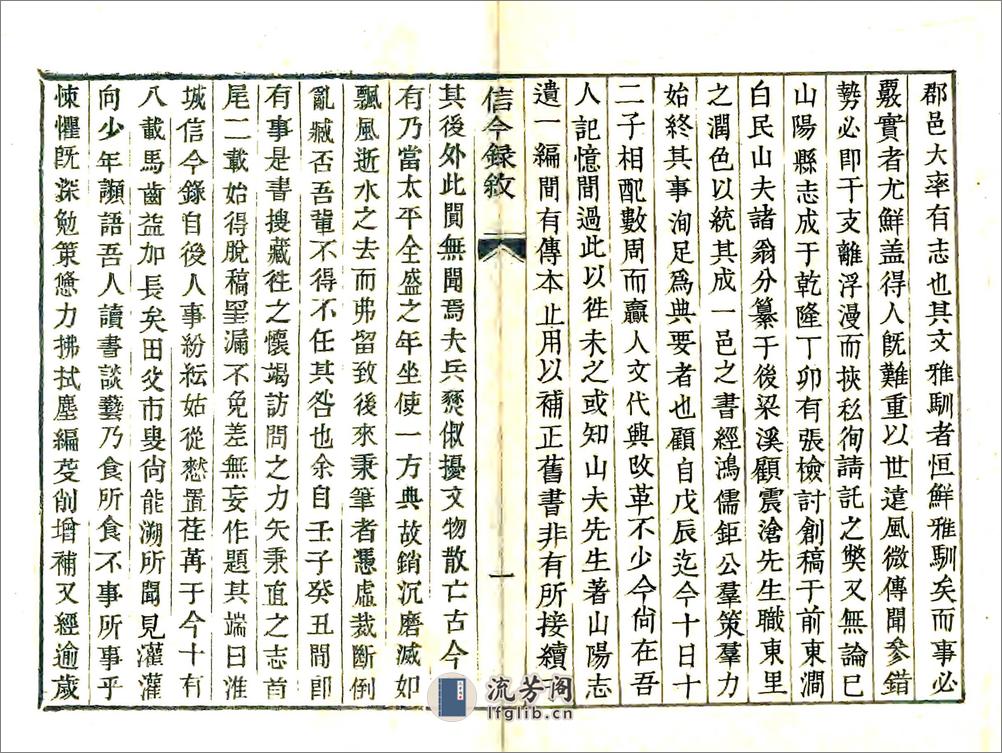 郡邑大率有志也其文雅馴者恒鮮雅馴矣而事必
覈實者尤鮮盖得人旣難重以世遠風微傳聞參錯
勢必卽于支離浮漫而挾私徇請託之獘又無論已
山陽縣志成于乾隆丁卯有張檢討創稿于前東澗
白民山夫諸翁分纂于後梁溪顧震滄先生職東里
之潤色以統其成一邑之書經鴻儒鉅公羣策羣力
始終其事洵足爲典要者也顧自戊辰迄今十日十
二子相配數周而贏人文代興改革不少今尙在吾
人記憶間過此以徃未之或知山夫先生著山陽志
遺一編間有傳本止用以補正舊書非有所接續
信今録敘
一
其後外此閴無聞焉夫兵燹俶擾文物散亡古今
有乃當太平全盛之年坐使一方典故銷沉磨滅如
飄風逝水之去而弗留致後來秉筆者憑虛裁斷倒
亂臧否吾輩不得不任其咎也余自壬子癸丑間卽
有事是書搜藏徃之懷竭訪問之力矢秉直之志首
尾二載始得脫稿罣漏不免差無妄作題其端曰淮
城信今錄自後人事紛紜姑從憗置荏苒于今十有
八載馬齒益加長矣田父市叟尙能溯所聞見灌灌
向少年謆語吾人讀書談藝乃食所食不事所事乎
悚懼旣深勉策憊力拂拭塵編芟削增補又經逾歲
流芳阁
lfglib.cn